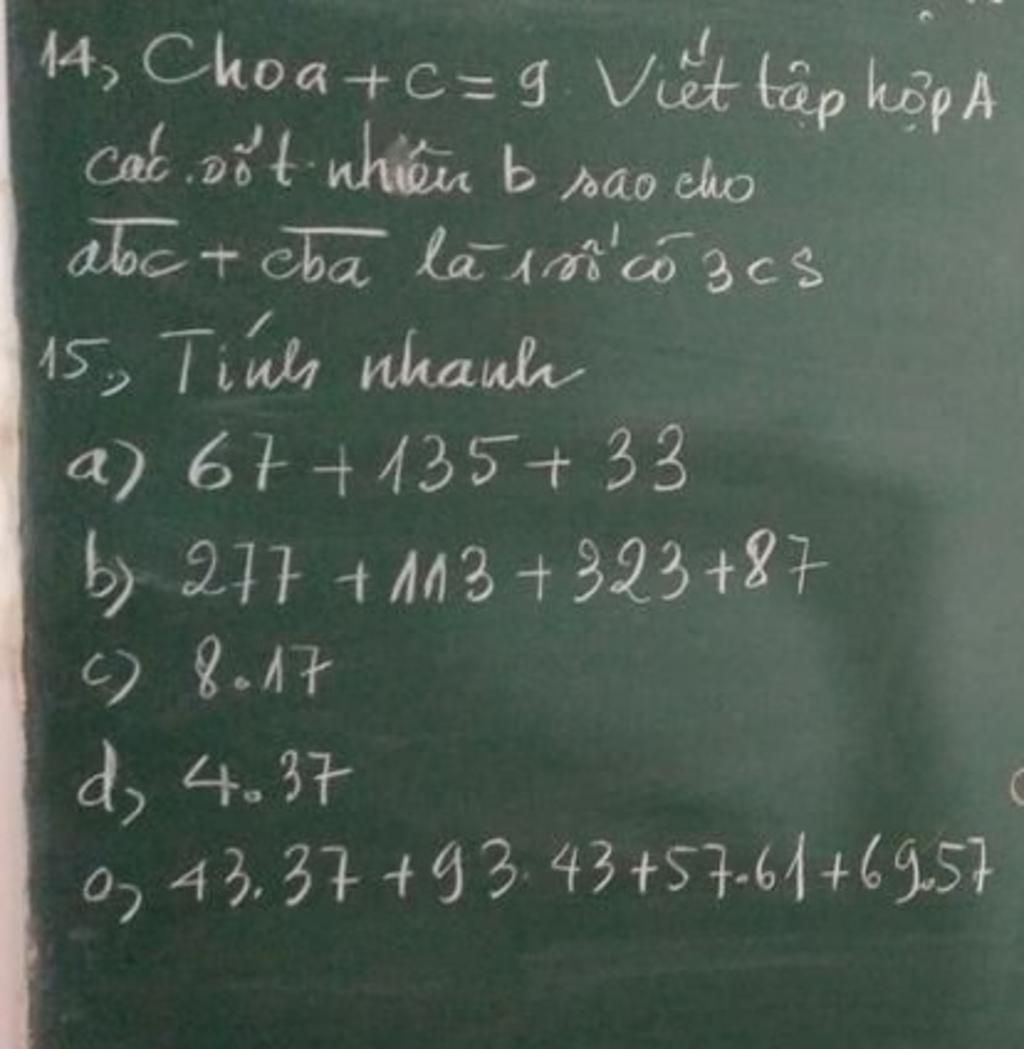 14, Cho a + c = 9. Viết tập hợp A
các số t. nhiên b sao cho
a̅b̅c̅ + c̅b̅a̅ là 1 số có 3 cs
15, Tính nhanh
a) 67 + 135 + 33
b) 277 + 113 + 323 + 87
c) 8.17
d, 4.37
e, 43.37 + 93.43 + 57.61 + 69.57